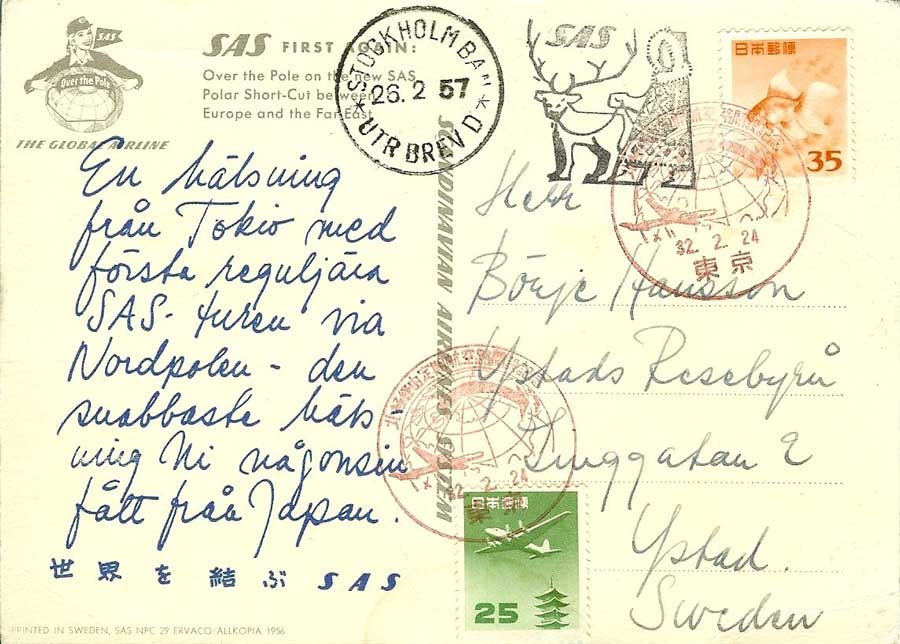 SAS
Over the Pole
THE GLOBAL AIRLINE
SAS FIRST AGAIN:
Over the Pole on the new SAS
Polar Short-Cut between
Europe and the Far East
STOCKHOLM BAN
26. 2 57
UTR BREV D
SAS
日本郵便
35
32. 2. 24
東京
En hälsning
från Tokio med
första reguljära
SAS-turen via
Nordpolen - den
snabbaste häls
ning Ni någonsin
fått från Japan.
世界を結ぶ SAS
SCANDINAVIAN AIRLINES SYSTEM
Herr
Börje Hansson
Ystads Resebyrå
Ystad.
Sweden
32. 2. 24
東京
日本郵便
25
PRINTED IN SWEDEN, SAS NPC 29 ERVACO/ALLKOPIA 1956